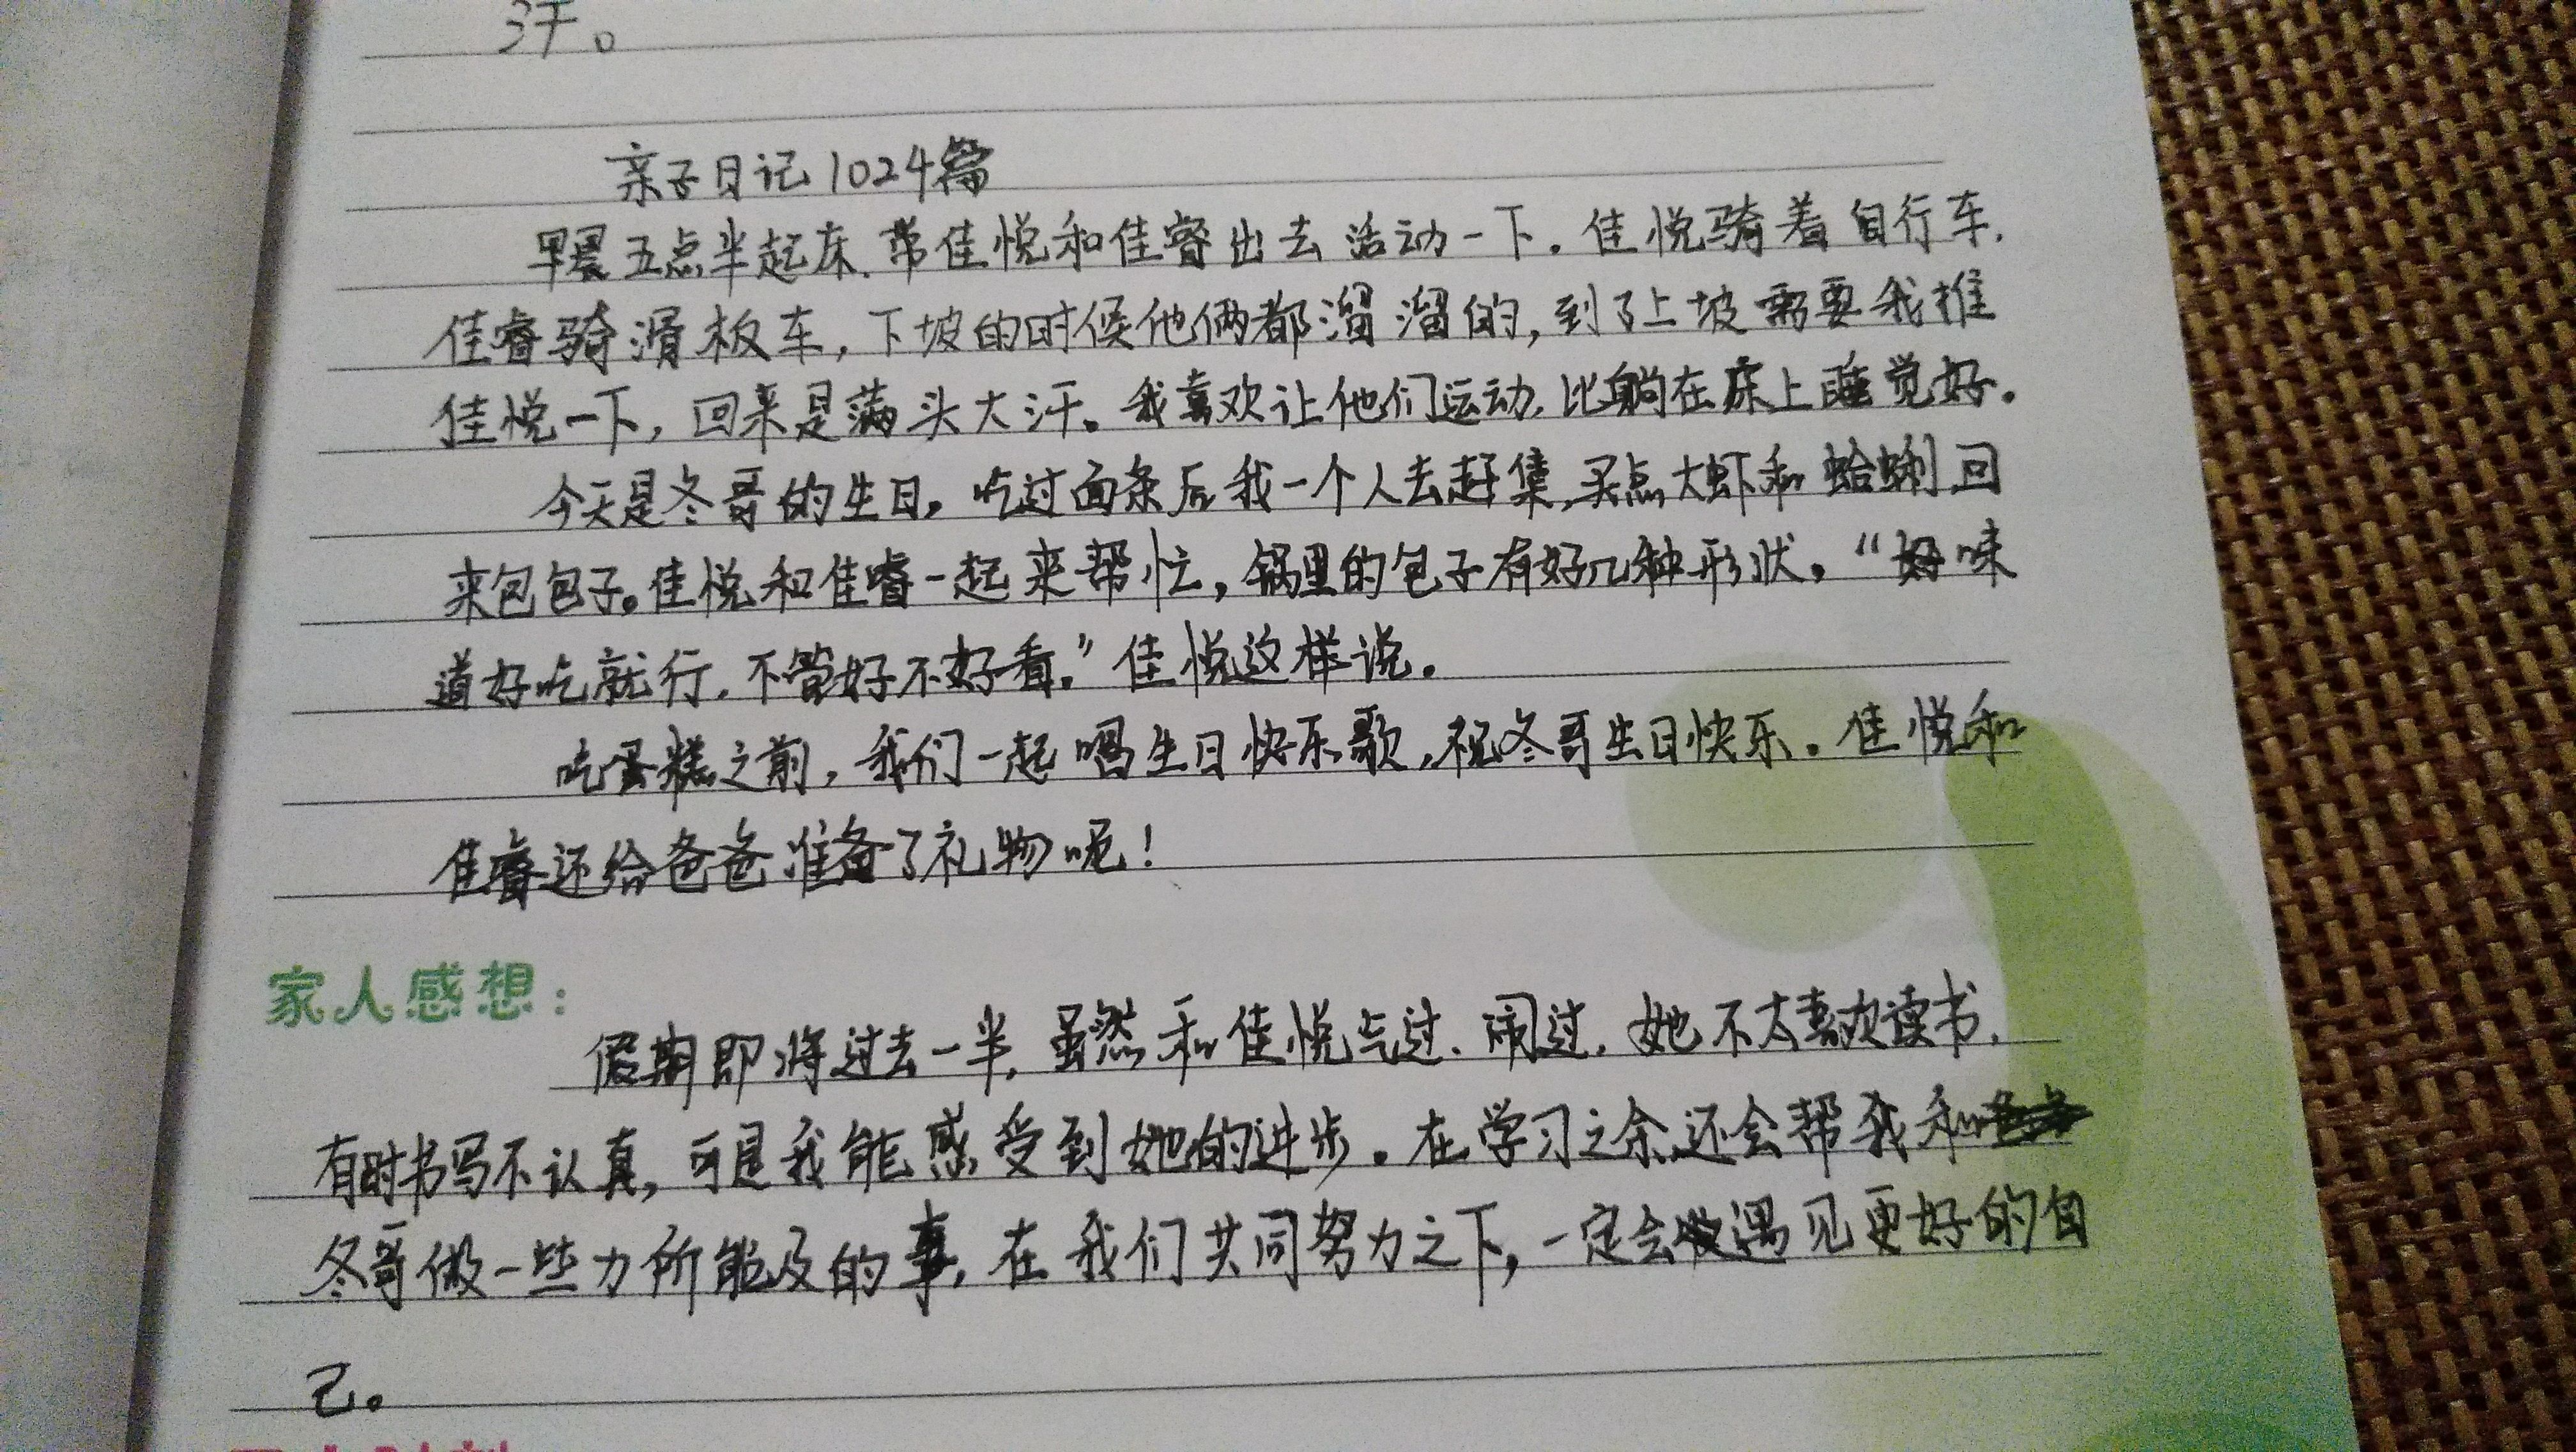 汗。
亲子日记1024篇
早晨五点半起床.带佳悦和佳睿出去活动一下.佳悦骑着自行车.
佳睿骑滑板车,下坡的时候他俩都溜溜的,到了上坡需要我推
佳悦一下,回来是满头大汗。我喜欢让他们运动.比躺在床上睡觉好.
今天是冬哥的生日,吃过面条后我一个人去赶集,买点大虾和蛤蜊回
来包包子。佳悦和佳睿一起来帮忙,锅里的包子有好几种形状,“好味
道好吃就行.不管好不好看.”佳悦这样说.
吃蛋糕之前,我们一起唱生日快乐歌,祝冬哥生日快乐.佳悦和
佳睿还给爸爸准备了礼物呢!
家人感想:
假期即将过去一半,虽然和佳悦气过.闹过.她不太喜欢读书.
有时书写不认真,可是我能感受到她的进步.在学习之余还会帮我和
冬哥做一些力所能及的事,在我们共同努力之下,一定会遇见更好的自
己。